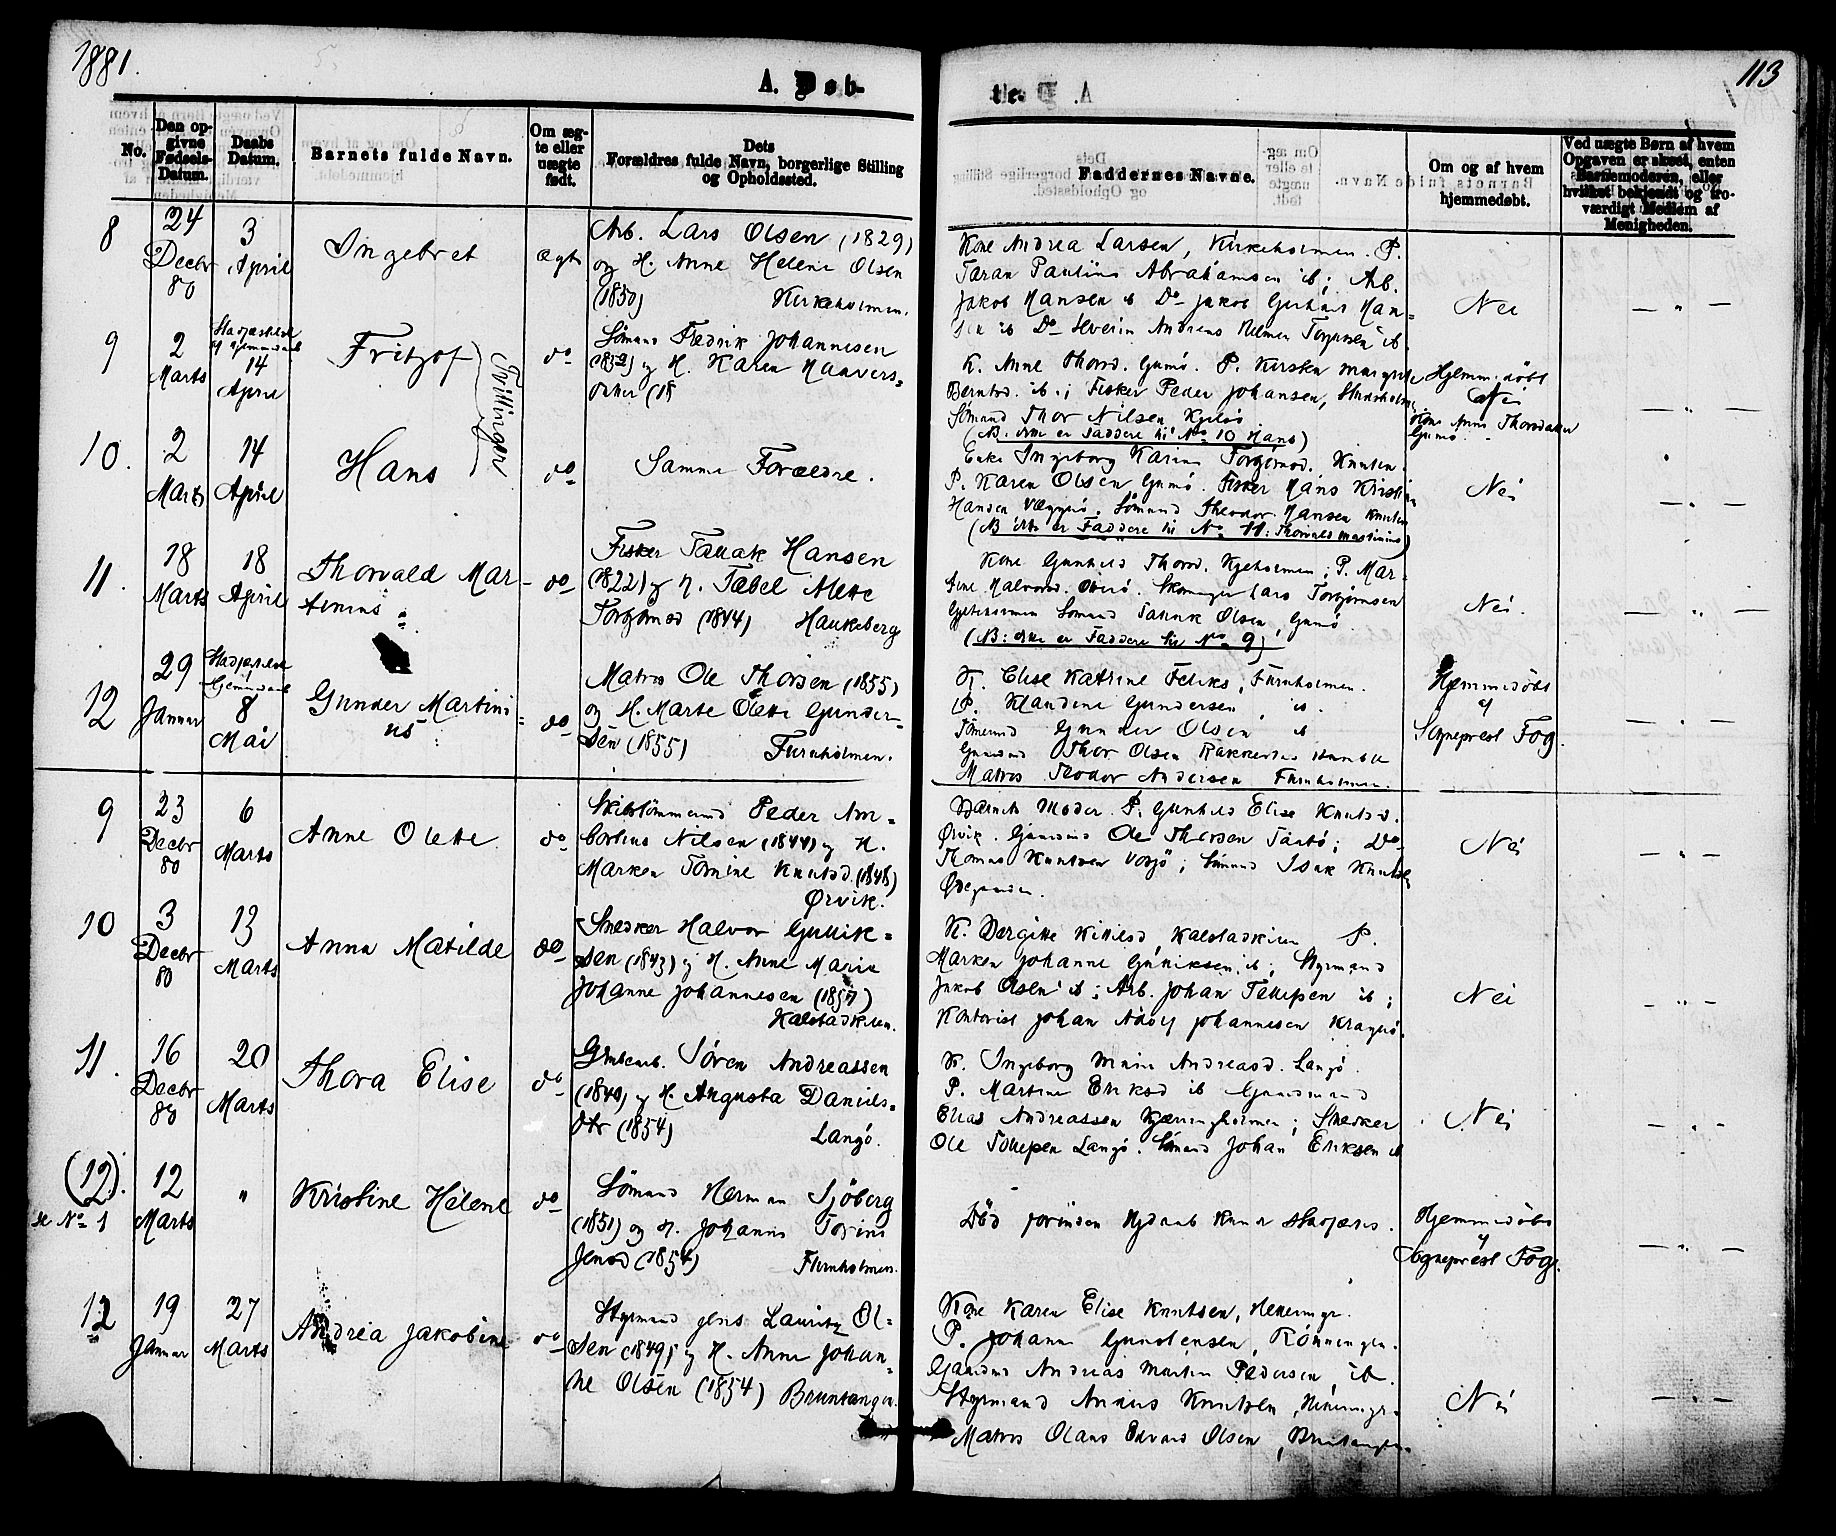 1881.
113
A. Døb-
te.
No.
Den op-
givne
Fødsels-
Datum.
Daabs
Datum.
Barnets fulde Navn.
Om æg-
te eller
uægte
født.
Dets
Forældres fulde Navn, borgerlige Stilling
og Opholdssted.
Faddernes Navne.
Om og af hvem
hjemmedøbt.
Ved uægte Børn af hvem
Opgaven er skeet, enten
Barnemoderen, eller
hvilket bekjendt og tro-
værdigt Medlem af
Menigheden.
8
24
Decbr
80
3
April
Ingebret
ægte
Arb. Lars Olsen (1829)
og H. Anne Helene Olsen
(1850) Kirkeholmen.
Kone Andrea Larsen, Kirkeholmen. P.
Taran Pauline Abrahamsen ib; Arb.
Jakob Hansen ib Do Jakob Gerhard Han-
sen ib Do Severin Andreas Helmer Torgersen ib.
Nei
— " —
9
2
Marts
Stadfæstelse
af Hjemmedaab
14
April
Fritzof
Tvillinger
do
Sömand Fredrik Johannesen
(1852) og H. Karen Haavors-
datter (18
K. Anne Thorsd. Gumö. P. Kirsten Margrete
Berntsd. ib.; Fisker Peder Johansen,
Sömand Thor Nilsen
(NB. disse er Faddere til No 10 Hans)
Hjemmedöbt
Nei
Kone Anne Thorsdatter
Gumö.
— " —
10.
2
Marts
14
April
Hans
do
Samme Forældre.
Enke Ingeborg Karine Torgersd.
P. Karen Olsen Gumö. Fisker Hans Kristian
Hansen Sömand Theodor Hansen
(NB disse er Faddere til No 11: Thorvald Martinius)
Nei
— " —
11.
18
Marts
18
April
Thorvald Mar-
tinius
do
Fisker Tallak Hansen
(1822) og H. Tabel Alette
Torgersd (1844) Haukeberg
Kone Gunhild Thorsd. P. Mar-
tine Halvorsd. Lars Torgersen
Sömand Tallak Olsen, Gumö
(NB: disse er Faddere til No 9)
Nei.
— " —
12
29
Januar
Stadfæstelse
af
Hjemmedaab
8
Mai
Gunder Martini-
us
do
Matros Ole Thorsen (1855)
og H. Marte Olette Gunder-
sen (1855) Furuholmen.
K. Elise Katrine Feliks, Furuholmen.
P. Klandine Gundersen, ib.
Tömmermd Gunder Olsen ib
Gaardmd Thor Olsen
Matros Teodor Andersen Furuholmen.
Hjemmedöbt
af
Sogneprest Fog.
— " —
9
23
Decbr
80
6
Marts
Anne Olette
do
Skibstömmermd Peder Am-
bortius Nilsen (1844) og H.
Marken Tomine Knutsd. (1848)
Ørvik.
Barnets Moder. P. Gunhild Elise Knutsd.
Ørvik. Gaardmd Ole Thorsen Do
Thomas Knutsen Sömand Isak Knutsen
Nei
— " —
10
3
Decbr
80
13
Marts
Anna Matilde
do
Snedker Halvor Gullik-
sen (1843) og H. Anne Marie
Johanne Johannesen (1857)
Kalstadkilen.
K. Bergitte Kittilsd, Kalstadkilen P.
Marken Johanne Gulliksen, ib; Styrmand
Jakob Olsen ib; Arb. Johan Tellefsen ib;
Kontorist Johan Adolf Johannesen Kragerö.
Nei
— " —
11.
16
Decbr
80
20
Marts
Thora Elise
do
Grubearb. Sören Andreassen
(1840) og H. Augusta Daniels-
dtr (1854) Langö.
K. Ingeborg Marie Andreasd. Langö.
P. Martine Eriksd ib Gaardmand
Elias Andreassen Kjæringholmen; Snedker
Ole Tollefsen Langö. Sömand Johan Eriksen ib
Nei
— " —
(12).
se No 1
12
Marts
"
Kristine Helene
do
Sömand Herman Sjöberg
(1851) og H. Johanne Torine
Jensd (1854) Furuholmen.
Död forinden Hjdaab kunde stadfæstes.
Hjemmedöbt
af
Sogneprest Fog.
— " —
12
19
Januar
27
Marts
Andrea Jakobine
do
Styrmand Jens Lauritz Ol-
sen (1849) og H. Anne Johan-
ne Olsen (1854) Bruntangen.
Kone Karen Elise Knutsen,
P. Johanne Gunstensen, Rönningen.
Gaardmd Andreas Martin Pedersen, ib.
Styrmand Knutsen,
Matros Olaus Edvard Olsen, Bruntangen.
Nei
— " —